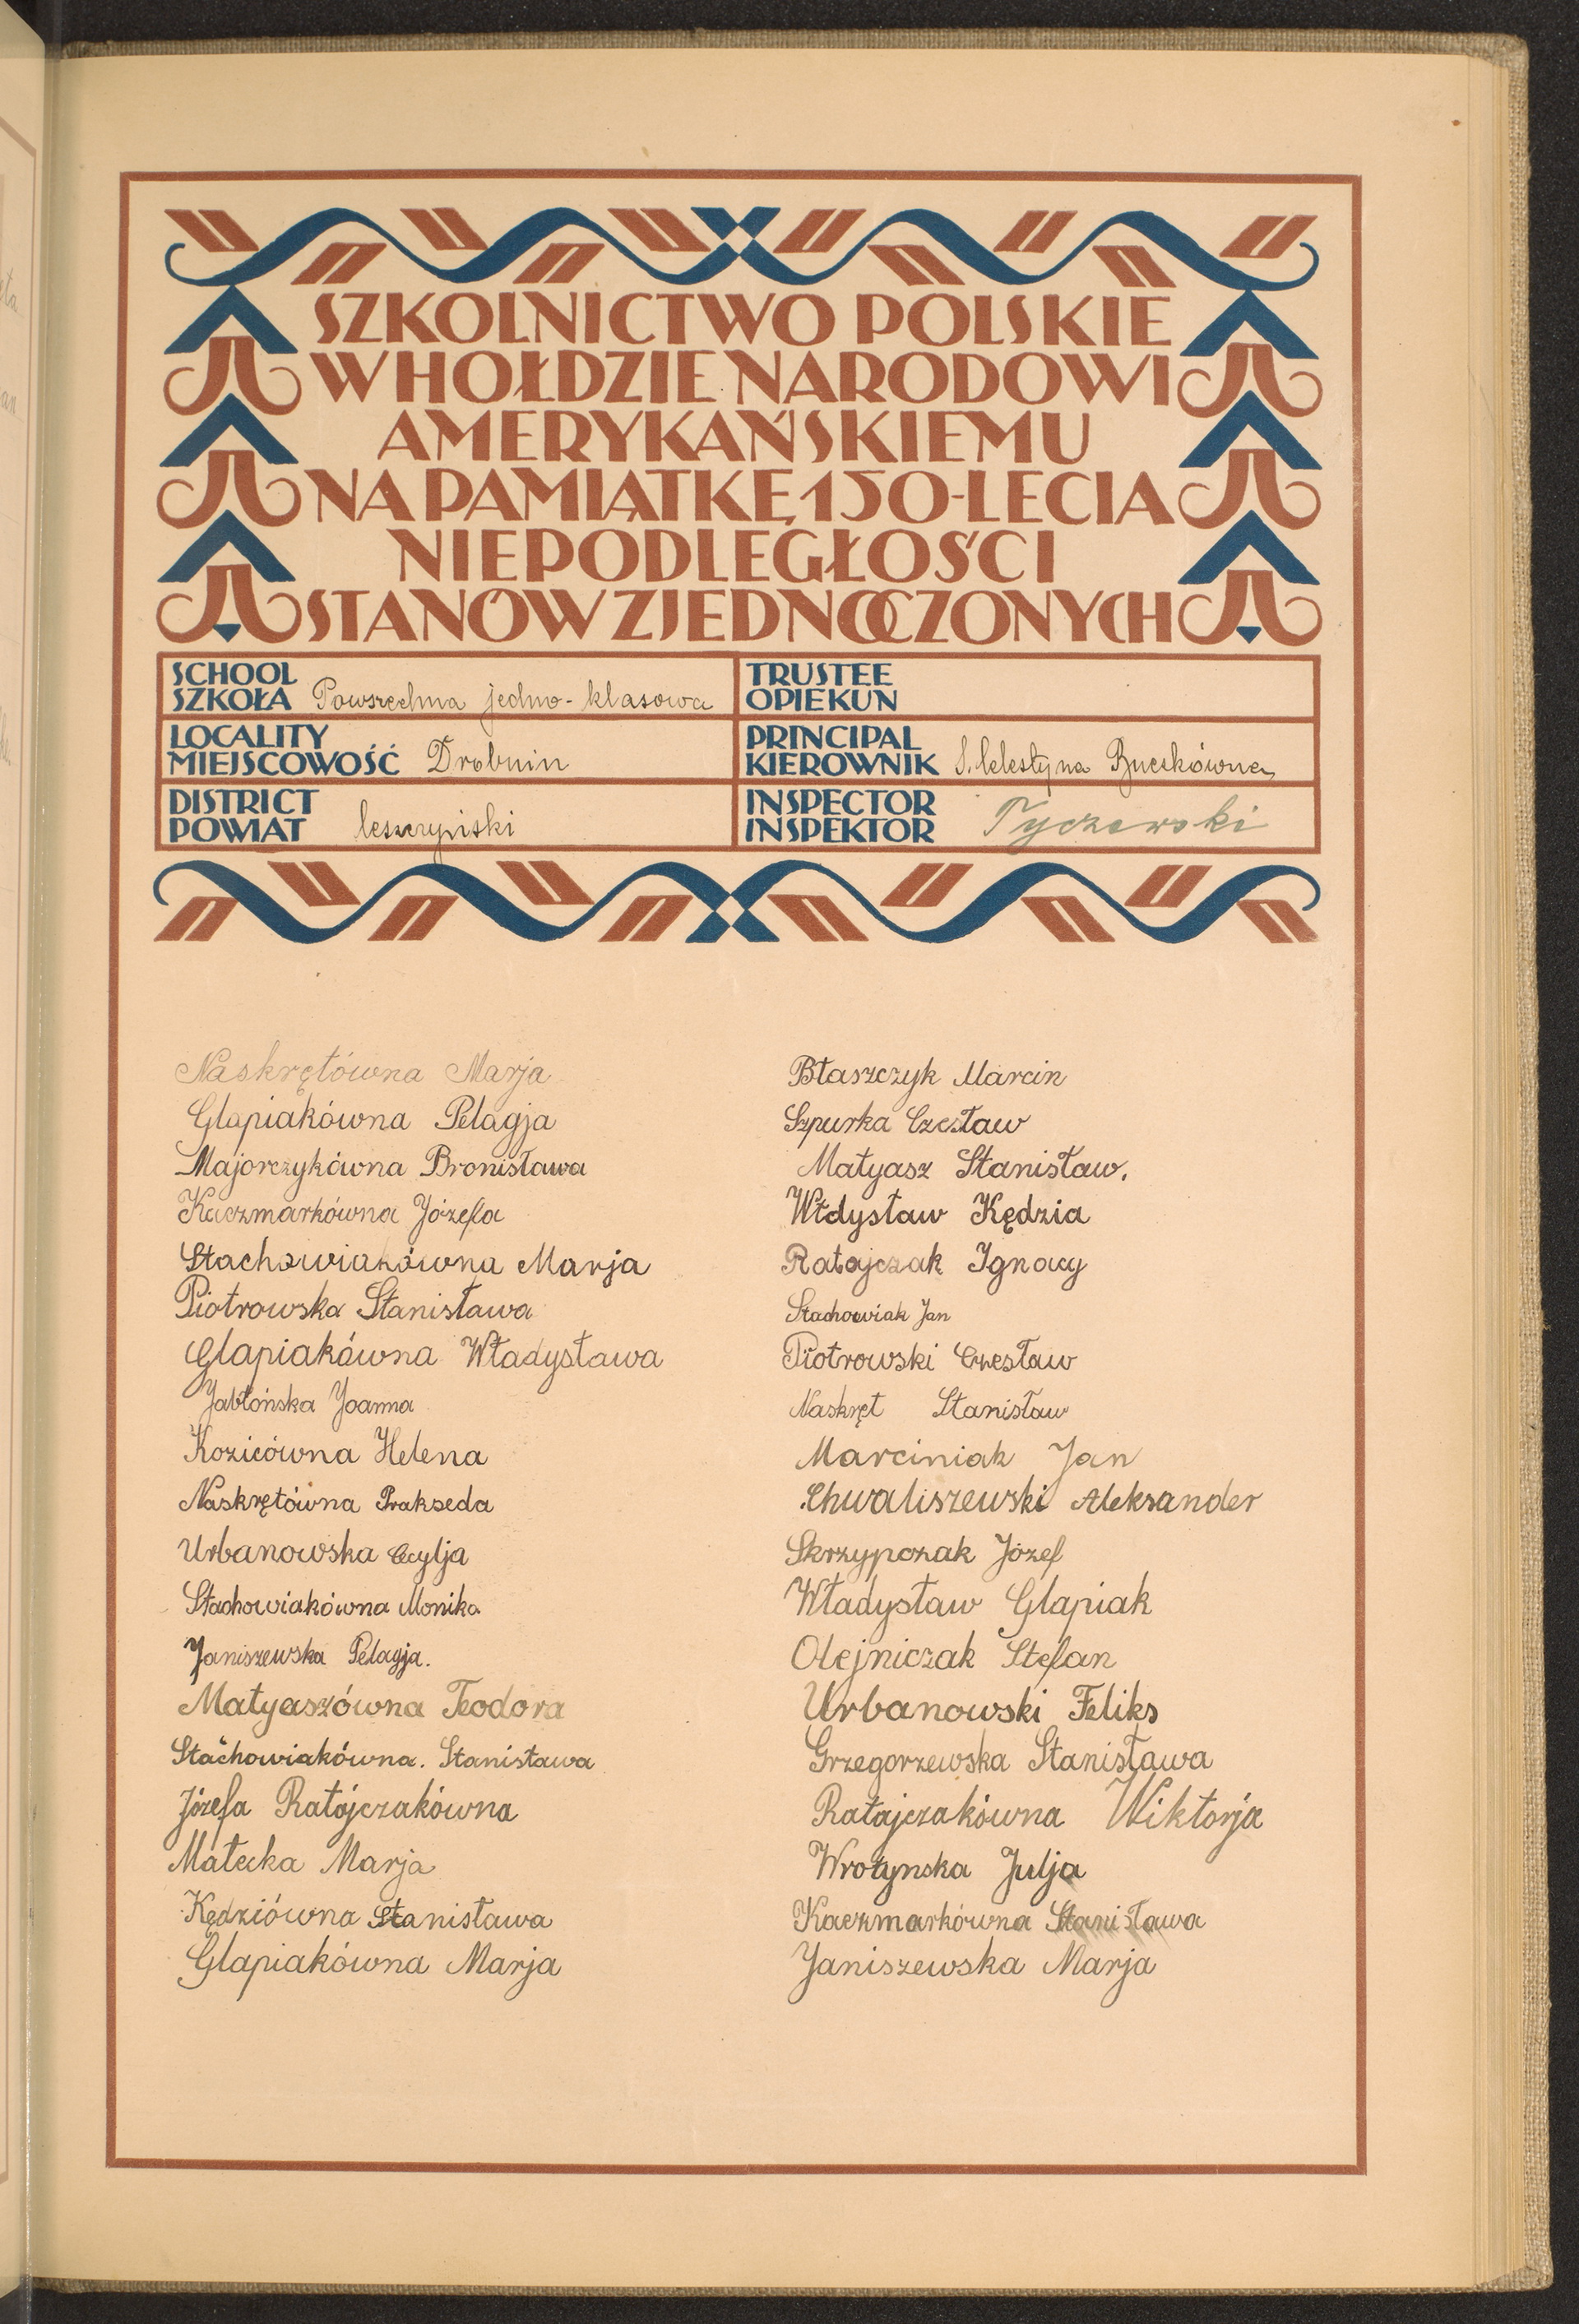 SZKOLNICTWO POLSKIE
W HOŁDZIE NARODOWI
AMERYKAŃSKIEMU
NA PAMIĄTKĘ 150-LECIA
NIEPODLEGŁOŚCI
STANÓW ZJEDNOCZONYCH
SCHOOL
SZKOŁA Powszechna jedno-klasowa
TRUSTEE
OPIEKUN
LOCALITY
MIEJSCOWOŚĆ Drobnin
PRINCIPAL
KIEROWNIK S. Celestyna
DISTRICT
POWIAT leszczyński
INSPECTOR
INSPEKTOR Tyczewski
Naskrętówna Marja
Glapiakówna Pelagja
Majorczykówna Bronisława
Kaczmarkówna Józefa
Stachowiakówna Marja
Piotrowska Stanisława
Glapiakówna Władysława
Jabłońska Joanna
Kozicówna Helena
Naskrętówna Prakseda
Urbanowska Cecylja
Stachowiakówna Monika
Janiszewska Pelagja.
Matyaszówna Teodora
Stachowiakówna. Stanisława
Józefa Ratajczakówna
Małecka Marja
Kędziówna Stanisława
Glapiakówna Marja
Błaszczyk Marcin
Szpurka Czesław
Matyasz Stanisław.
Włdysław Kędzia
Ratajczak Ignacy
Stachowiak Jan
Piotrowski Czesław
Naskręt Stanisław
Marciniak Jan
Chwaliszewski Aleksander
Skrzypczak Józef
Władysław Glapiak
Olejniczak Stefan
Urbanowski Feliks
Grzegorzewska Stanisława
Ratajczakówna Wiktorja
Julja
Kaczmarkówna Stanisława
Janiszewska Marja